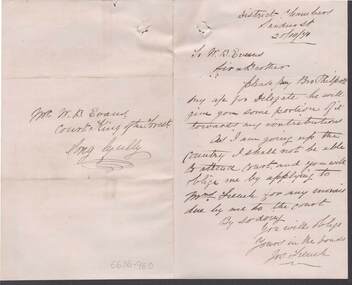 District Chambers
Sandhurst
To W. B. Evans
Sir & Brother
Please pay Bro Philpott
my for Delegate, he will
give you some portion of it
towards my contributions
As I am going up the
Country I shall not be able
to attend Court and you will
oblige me by applying to
Mrs French for any monies
due by me to the court
By so doing
You will oblige
Yours in the bonds
Jos French
Mr. W. B. Evans
Court King of the Forest
Long Gully